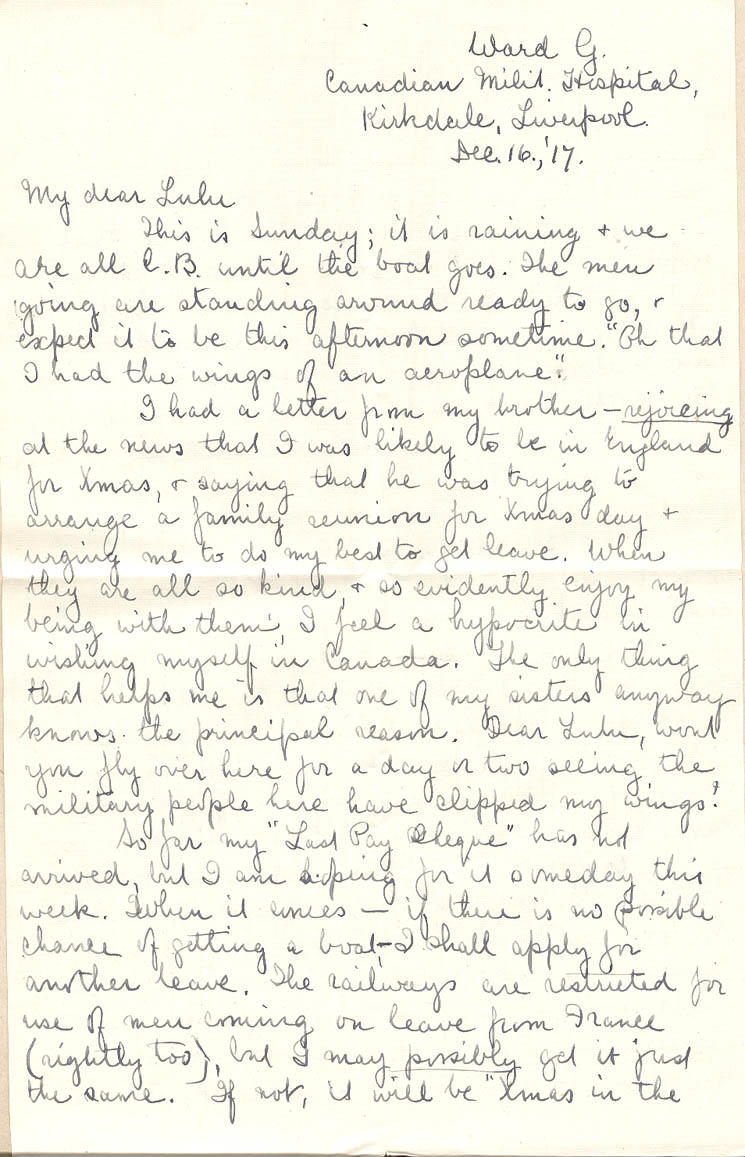 Ward G.
Canadian Milit. Hospital,
Kirkdale, Liverpool.
Dec. 16., '17.
My dear Lulu
This is Sunday; it is raining + we
are all C.B. until the boat goes. The men
going are standing around ready to go, +
expect it to be this afternoon sometime. "Oh that
I had the wings of an aeroplane".
I had a letter from my brother – rejoicing
at the news that I was likely to be in England
for Xmas, + saying that he was trying to
arrange a family reunion for Xmas day +
urging me to do my best to get leave. When
they are all so kind, + so evidently enjoy my
being with them, I feel a hypocrite in
wishing myself in Canada. The only thing
that helps me is that one of my sisters anyway
knows the principal reason. Dear Lulu, wont
you fly over here for a day or two seeing the
military people here have clipped my wings?
So far my "Last Pay Cheque" has not
arrived, but I am hoping for it someday this
week. When it comes – if there is no possible
chance of getting a boat – I shall apply for
another leave. The railways are restricted for
use of men coming on leave from France
(rightly too), but I may possibly get it just
the same. If not, it will be "Xmas in the